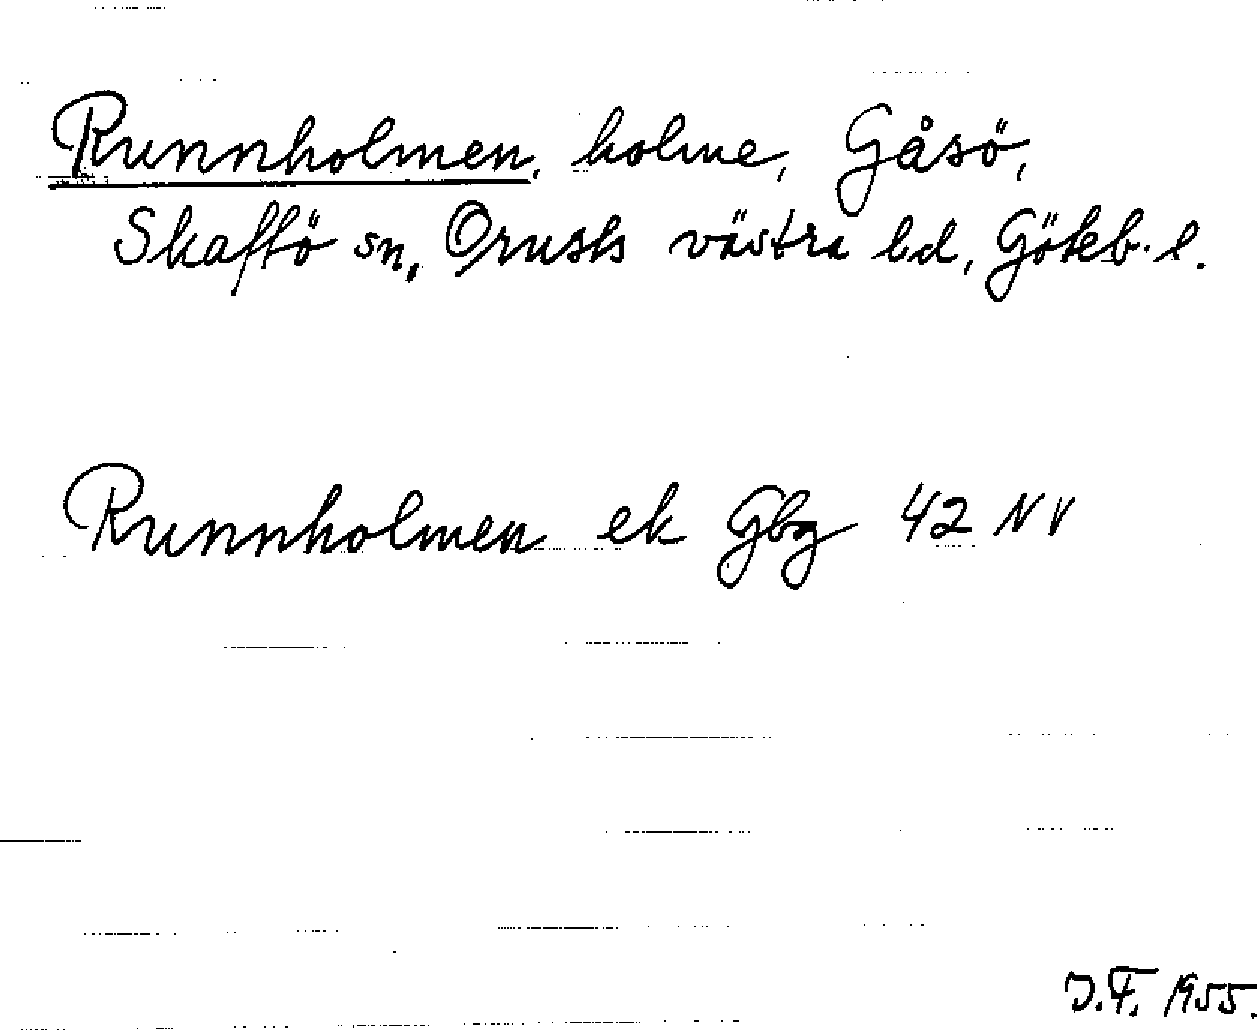 Runnholmen, holme, Gåsö,
Skaftö sn, Orusts västra hd, Göteb. l.
Runnholmen ek Gbg 42 NV
J.F. 1955.